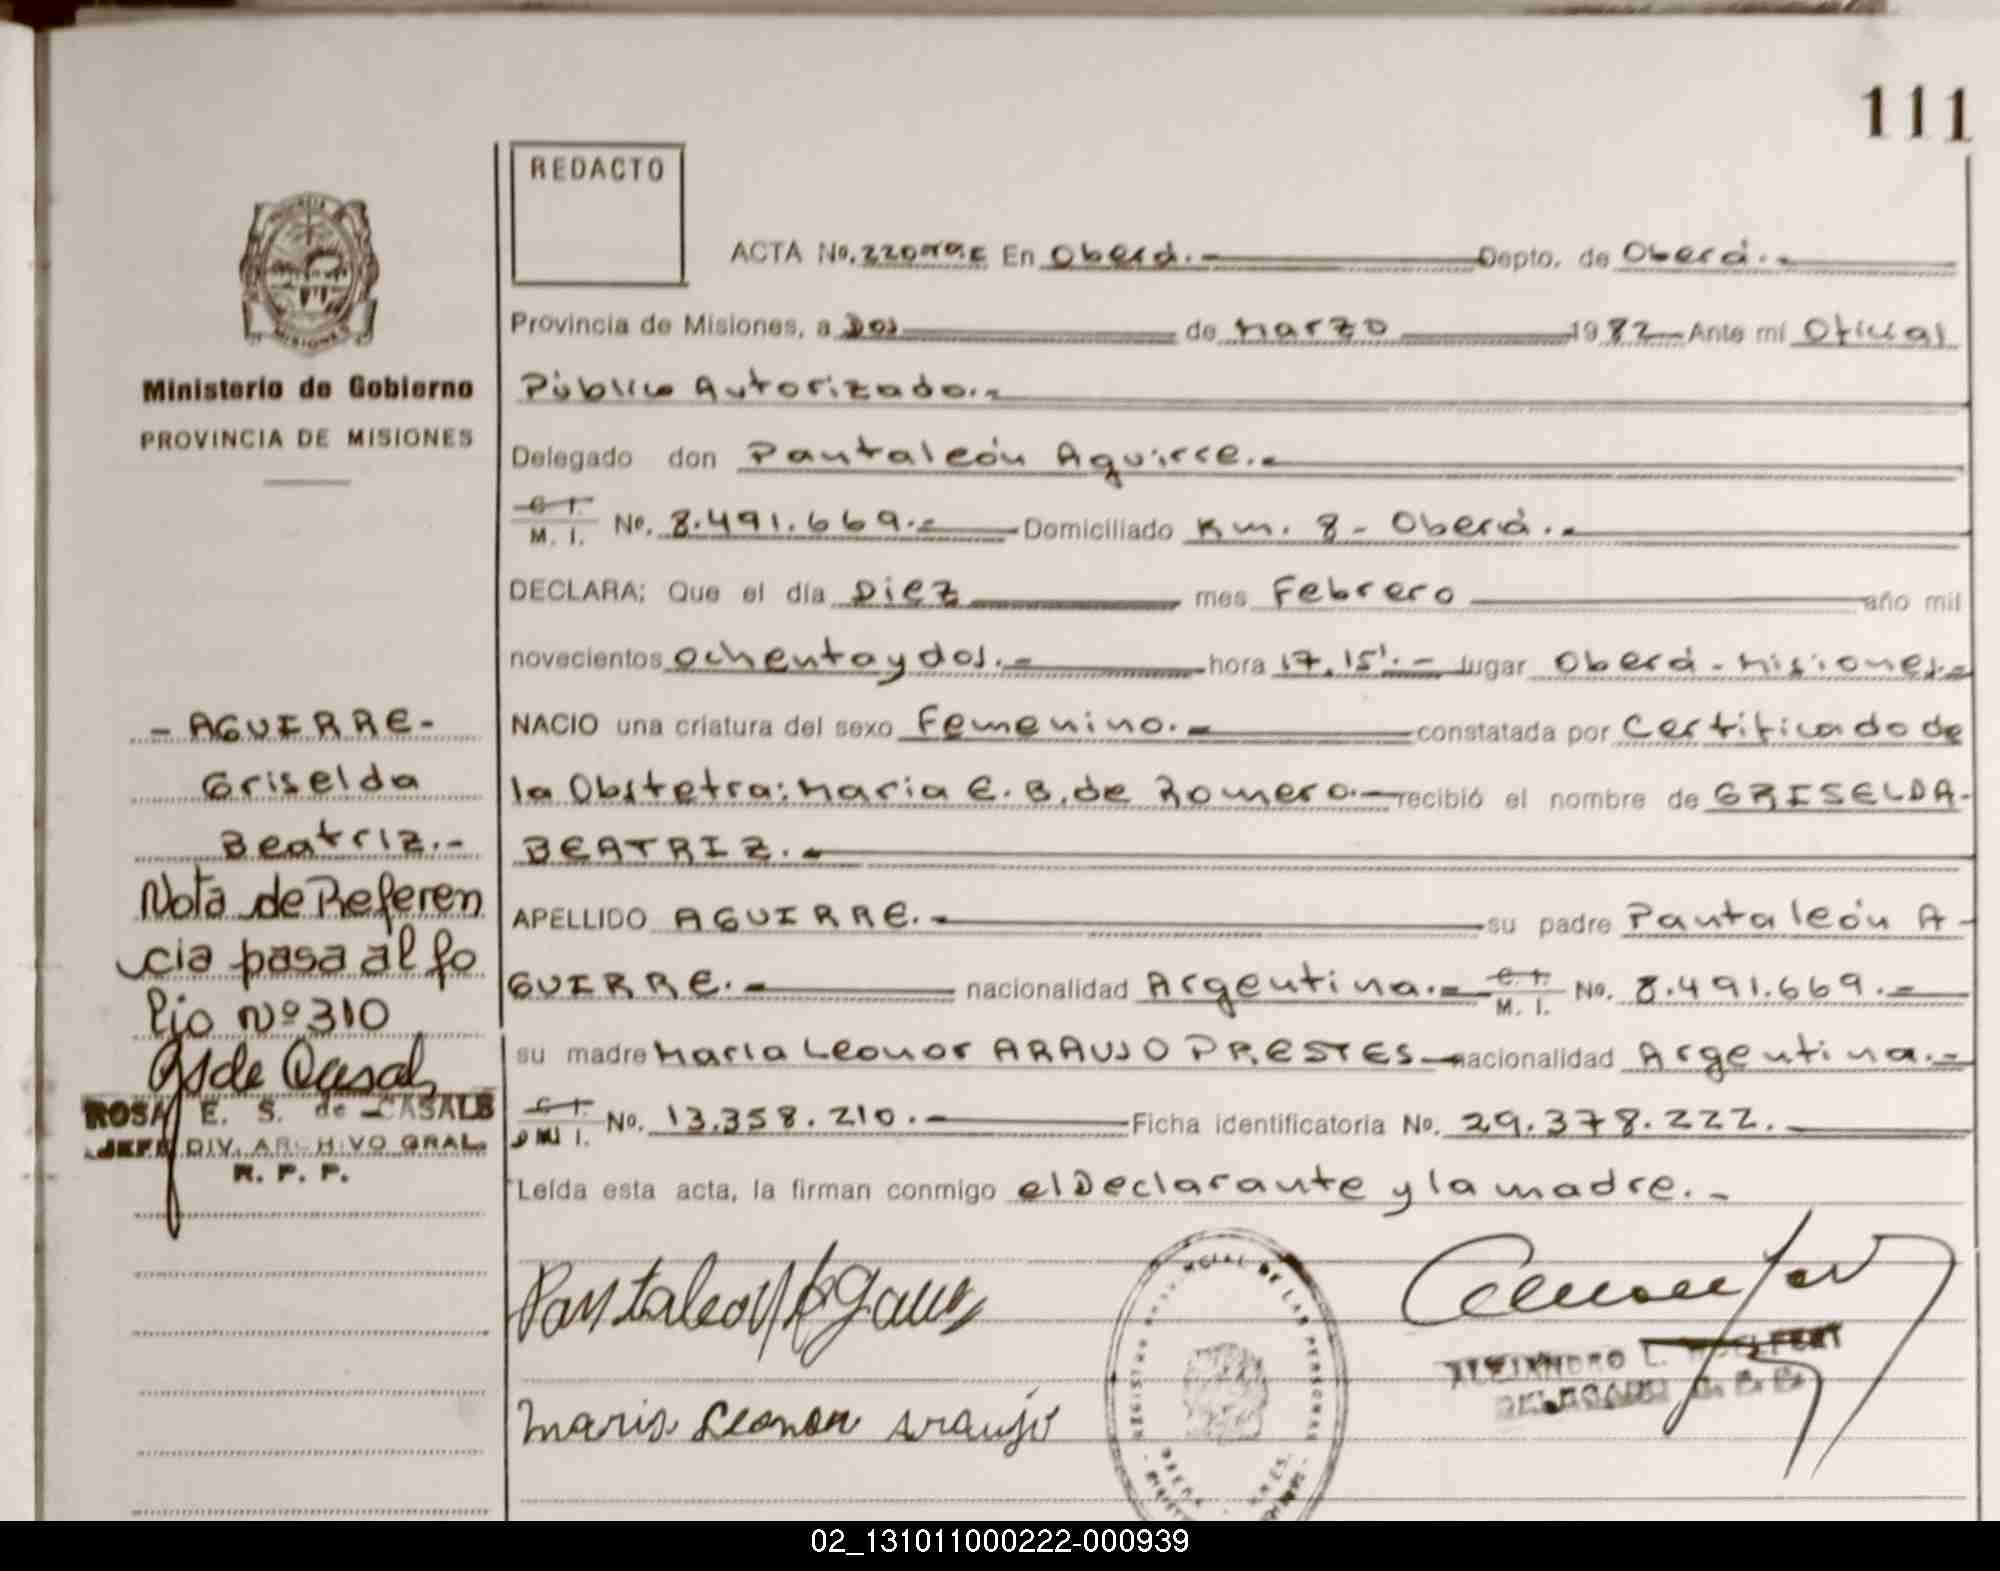 111
REDACTO
ACTA No. 220 En Oberá.- Depto. de Oberá.-
Provincia de Misiones, a Dos de Marzo 1982 Ante mí Oficial
Público Autorizado.-
Delegado don Pantaleón Aguirre.-
C. I.
M. I. No. 8.491.669.- Domiciliado Km. 8 - Oberá.-
DECLARA: Que el día Diez mes Febrero año mil
novecientos ochenta y dos.- hora 17,15'.- lugar Oberá - Misiones.-
NACIO una criatura del sexo Femenino.- constatada por Certificado de
la Obstetra: Maria E. B. de Romero.- recibió el nombre de GRISELDA-
BEATRIZ.-
APELLIDO AGUIRRE.- su padre Pantaleón A-
GUIRRE.- nacionalidad Argentina.- C. I.
M. I. No. 8.491.669.-
su madre Maria Leonor ARAUJO PRESTES nacionalidad Argentina.-
C. I.
M. I. No. 13.358.210.- Ficha identificatoria No. 29.378.222.
Leída esta acta, la firman conmigo el Declarante y la madre.-
Maria Leonor Araujo
ALEJANDRO L.
REGISTRO PROVINCIAL DE LAS PERSONAS
PROVINCIA
MISIONES
Ministerio de Gobierno
PROVINCIA DE MISIONES
- AGUIRRE -
Griselda
Beatriz.-
Nota de Referen
cia pasa al fo
lio Nº 310
ROSA E. S. de CASALS
JEFE DIV. ARCHIVO GRAL.
R. P. P.
02_131011000222-000939